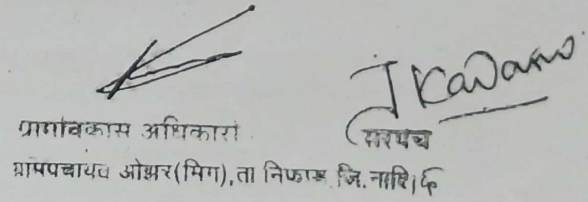 J Kadam
ग्रामविकास अधिकारी सरपंच
ग्रामपंचायत ओझर(मिग), ता निफाड जि. नाशिक